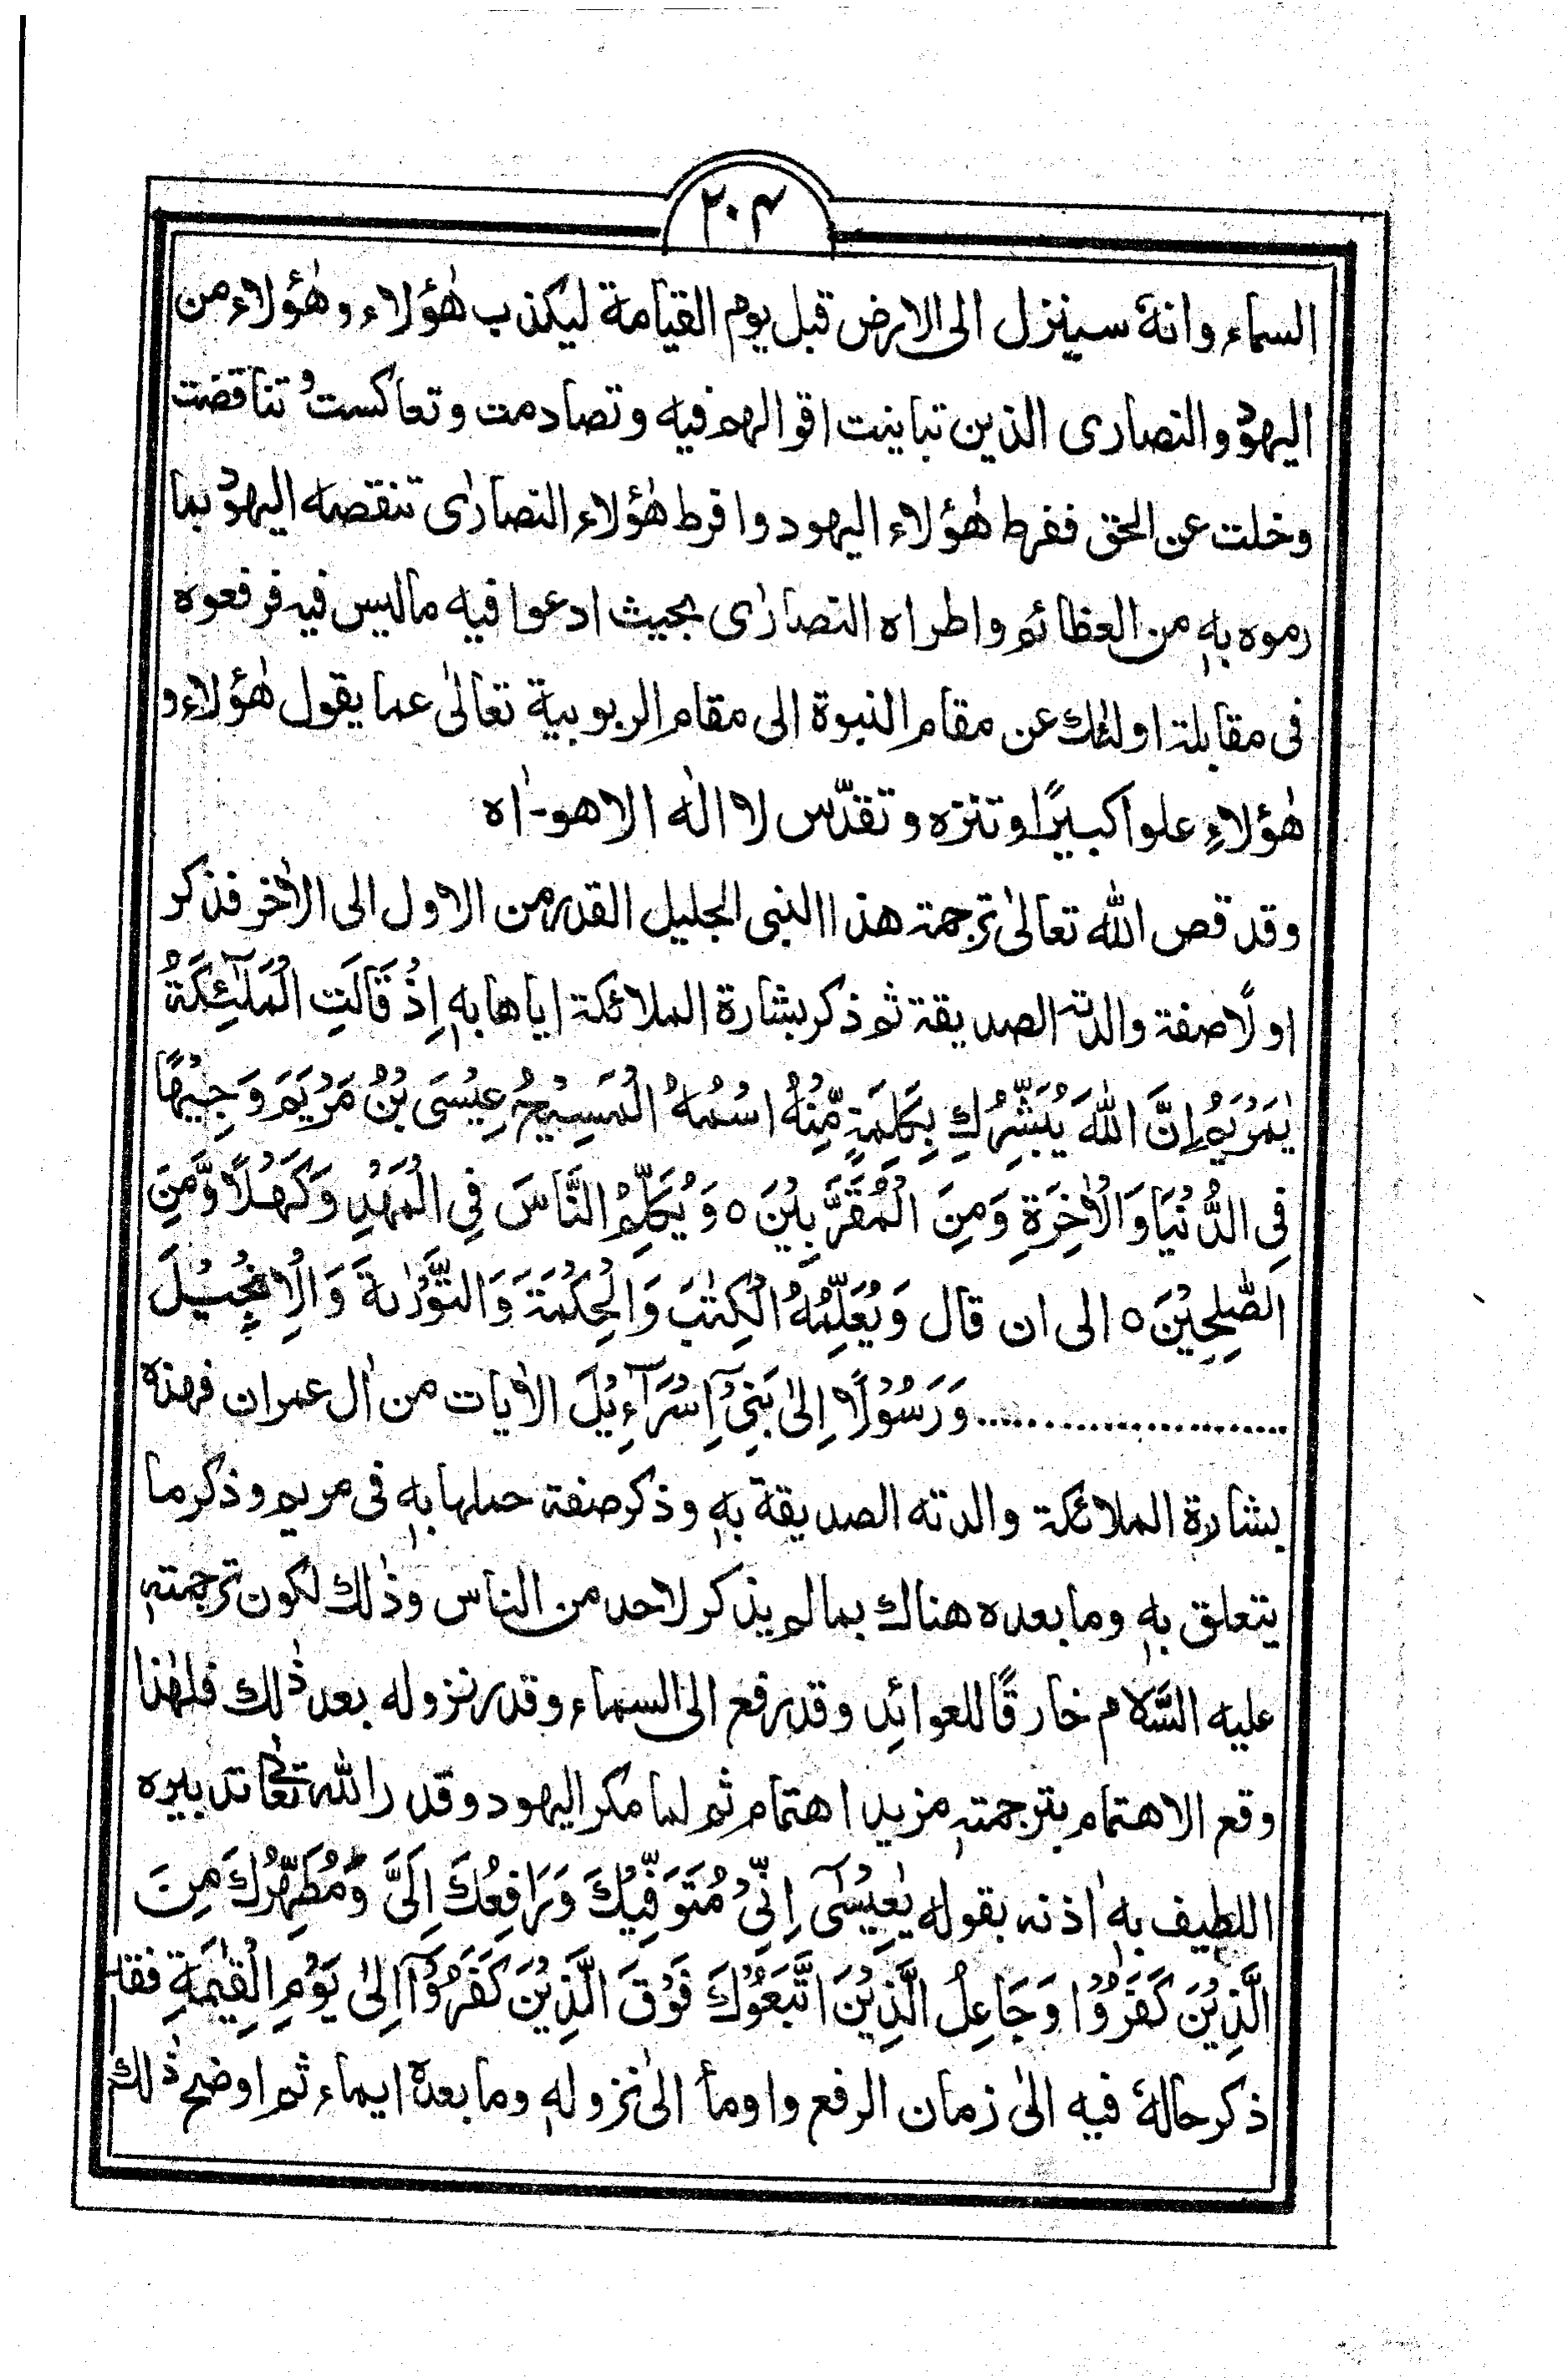 ۲۰۴
السماء وانهٗ سينزل الى الارض قبل يوم القيامة ليكذب هٰؤلاء وهٰؤلاء من
اليهود والنصارى الذين تباينت اقوالهم فيه وتصادمت وتعاكست و تناقضت
وخلت عن الحق ففرط هٰؤلاء اليهود وافرط هٰؤلاء النصارٰى تنقصه اليهود بما
رموه بهٖ من العظائم واطراه النصارٰى بحيث ادعوا فيه ماليس فيه فرفعوه
فى مقابلة اولئك عن مقام النبوة الى مقام الربوبية تعالىٰ عما يقول هٰؤلاء و
هٰؤلاءِ علوا كبيرًا وتنزه وتقدّس لا الٰه الا هو-اٰه
وقد قص الله تعالىٰ ترجمة هذا النبى الجليل القدر من الاول الى الاٰخر فذكر
اولًا صفة والدته الصديقة ثم ذكر بشارة الملائكة اياها بهٖ اِذْ قَالَتِ الْمَلٰٓئِكَةُ
يٰمَرْيَمُ اِنَّ اللّٰهَ يُبَشِّرُكِ بِكَلِمَةٍ مِّنْهُ اسْمُهُ الْمَسِيْحُ عِيْسَى بْنُ مَرْيَمَ وَجِيْهًا
فِى الدُّنْيَا وَالْاٰخِرَةِ وَمِنَ الْمُقَرَّبِيْنَ ٥ وَيُكَلِّمُ النَّاسَ فِى الْمَهْدِ وَكَهْلًا وَّمِنَ
الصّٰلِحِيْنَ ٥ الى ان قال وَيُعَلِّمُهُ الْكِتٰبَ وَالْحِكْمَةَ وَالتَّوْرٰىةَ وَالْاِنْجِيْلَ
........................ وَرَسُوْلًا اِلىٰ بَنِىْٓ اِسْرَآءِيْلَ الاٰيات من اٰل عمران فهذه
بشارة الملائكة والدته الصديقة بهٖ وذكر صفة حملها بهٖ فى مريم وذكر ما
يتعلق بهٖ وما بعده هناك بما لم يذكر لاحد من الناس وذٰلك لكون ترجمتهٖ
عليه السَّلام خارقًا للعوائدِ وقد رفع الى السماء وقدر نزوله بعد ذٰلك فلهٰذا
وقع الاهتمام بترجمتهٖ مزيد اهتمام ثم لما مكر اليهود وقدر الله تعالىٰ تدبيره
اللطيف بهٖ اٰذنه بقوله يٰعِيْسٰٓى اِنِّىْ مُتَوَفِّيْكَ وَرَافِعُكَ اِلَىَّ وَمُطَهِّرُكَ مِنَ
الَّذِيْنَ كَفَرُوْا وَجَاعِلُ الَّذِيْنَ اتَّبَعُوْكَ فَوْقَ الَّذِيْنَ كَفَرُوْٓا اِلىٰ يَوْمِ الْقِيٰمَةِ
ذكر حالهٗ فيه الىٰ زمان الرفع واومأ الىٰ نزولهٖ وما بعدهٗ ايماء ثم اوضح ذٰلك